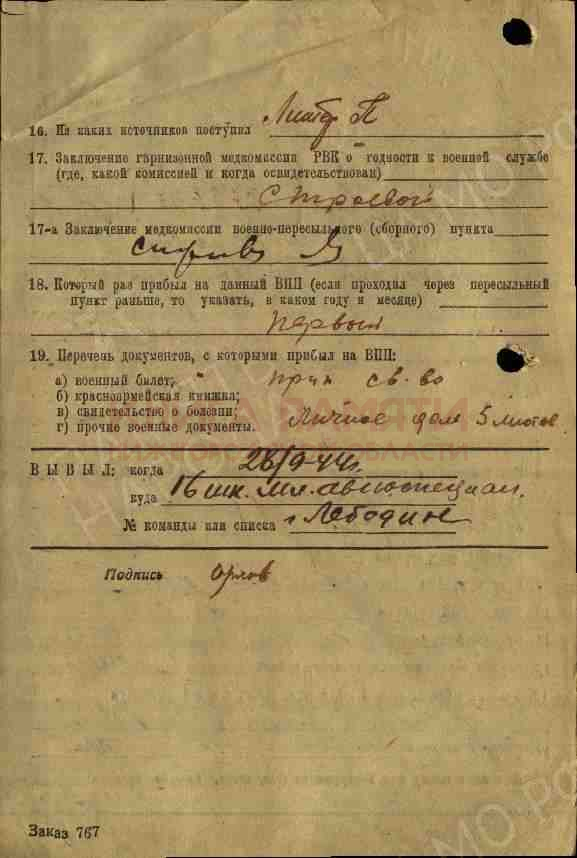 16. Из каких источников поступил
17. Заключение гарнизонной медкомиссии РВК о годности к военной службе
(где, какой комиссией и когда освидетельствован)
Строевой
17-а Заключение медкомиссии военно-пересыльного (сборного) пункта
18. Который раз прибыл на данный ВПП (если проходил через пересыльный
пункт раньше, то указать, в каком году и месяце)
первый
19. Перечень документов, с которыми прибыл на ВПП:
а) военный билет; прип св-во
б) красноармейская книжка;
в) свидетельство о болезни;
г) прочие военные документы. Личное дело 5 листов
ВЫБЫЛ: когда 28/9-44г.
куда 16 шк. мл. авиаспециал.
№ команды или списка г Лебедин
Подпись Орлов
Заказ 767